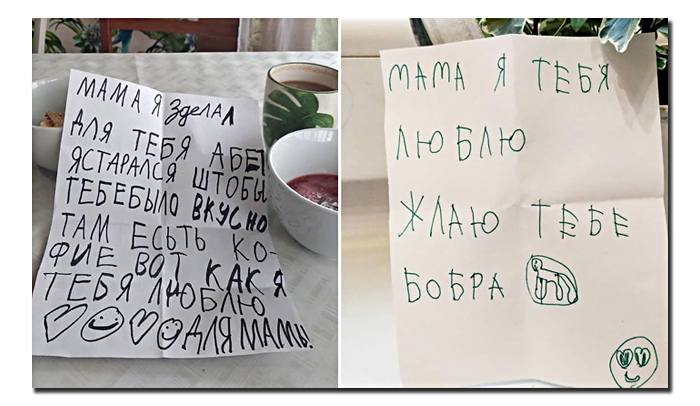 МАМА Я Зделал
ДЛЯ ТЕБЯ АБЕТ
ЯСТАРАЛСЯ ШТОБЫ
ТЕБЕБЫЛО ВКУСНО
ТАМ ЕСЬТЬ КО-
ФИЕ ВОТ КАК Я
ТЕБЯ ЛЮБЛЮ
ДЛЯ МАМЫ!
МАМА Я ТЕБЯ
ЛЮБЛЮ
ЖЛАЮ ТЕБЕ
БОБРА